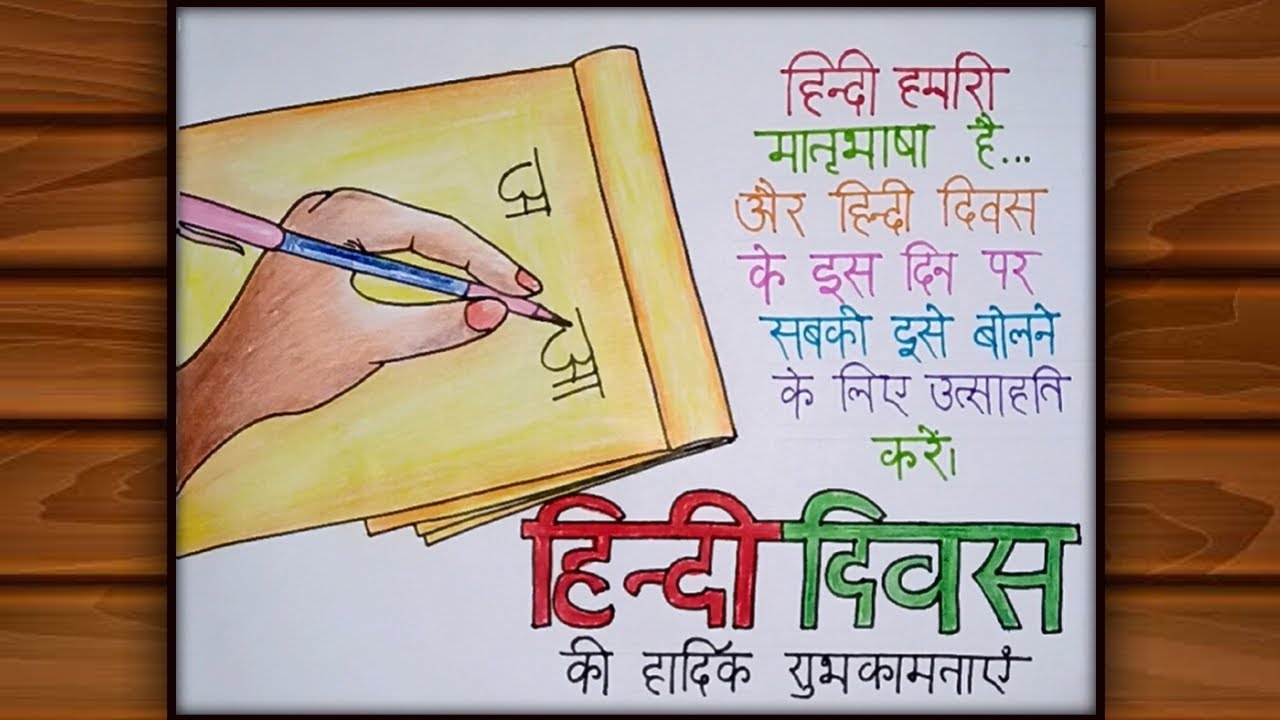 अ
आ
हिन्दी हमारी
मातृभाषा है...
और हिन्दी दिवस
के इस दिन पर
सबको इसे बोलने
के लिए उत्साहति
करें।
हिन्दी दिवस
की हार्दिक शुभकामनाएं